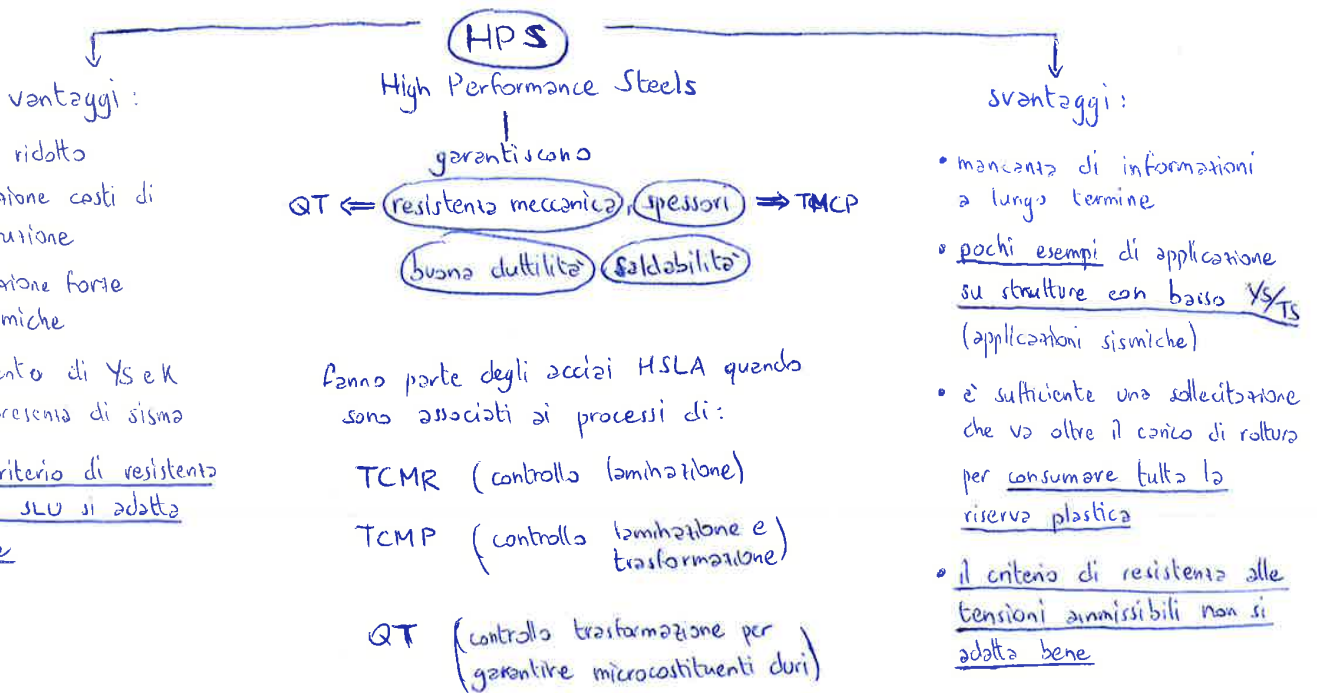 HPS
High Performance Steels
garantiscono
QT ⇐ resistenza meccanica, spessori ⇒ TMCP
buona duttilità saldabilità
fanno parte degli acciai HSLA quando
sono associati ai processi di:
TCMR (controllo laminazione)
TCMP (controllo laminazione e
trasformazione)
QT (controllo trasformazione per
garantire microcostituenti duri)
vantaggi:
ridotto
zione costi di
uzione
zione forze
miche
nto di YS e K
presenza di sisma
riterio di resistenza
SLU si adatta
e
svantaggi:
• mancanza di informazioni
a lungo termine
• pochi esempi di applicazione
su strutture con basso YS/TS
(applicazioni sismiche)
• è sufficiente una sollecitazione
che va oltre il carico di rottura
per consumare tutta la
riserva plastica
• il criterio di resistenza alle
tensioni ammissibili non si
adatta bene